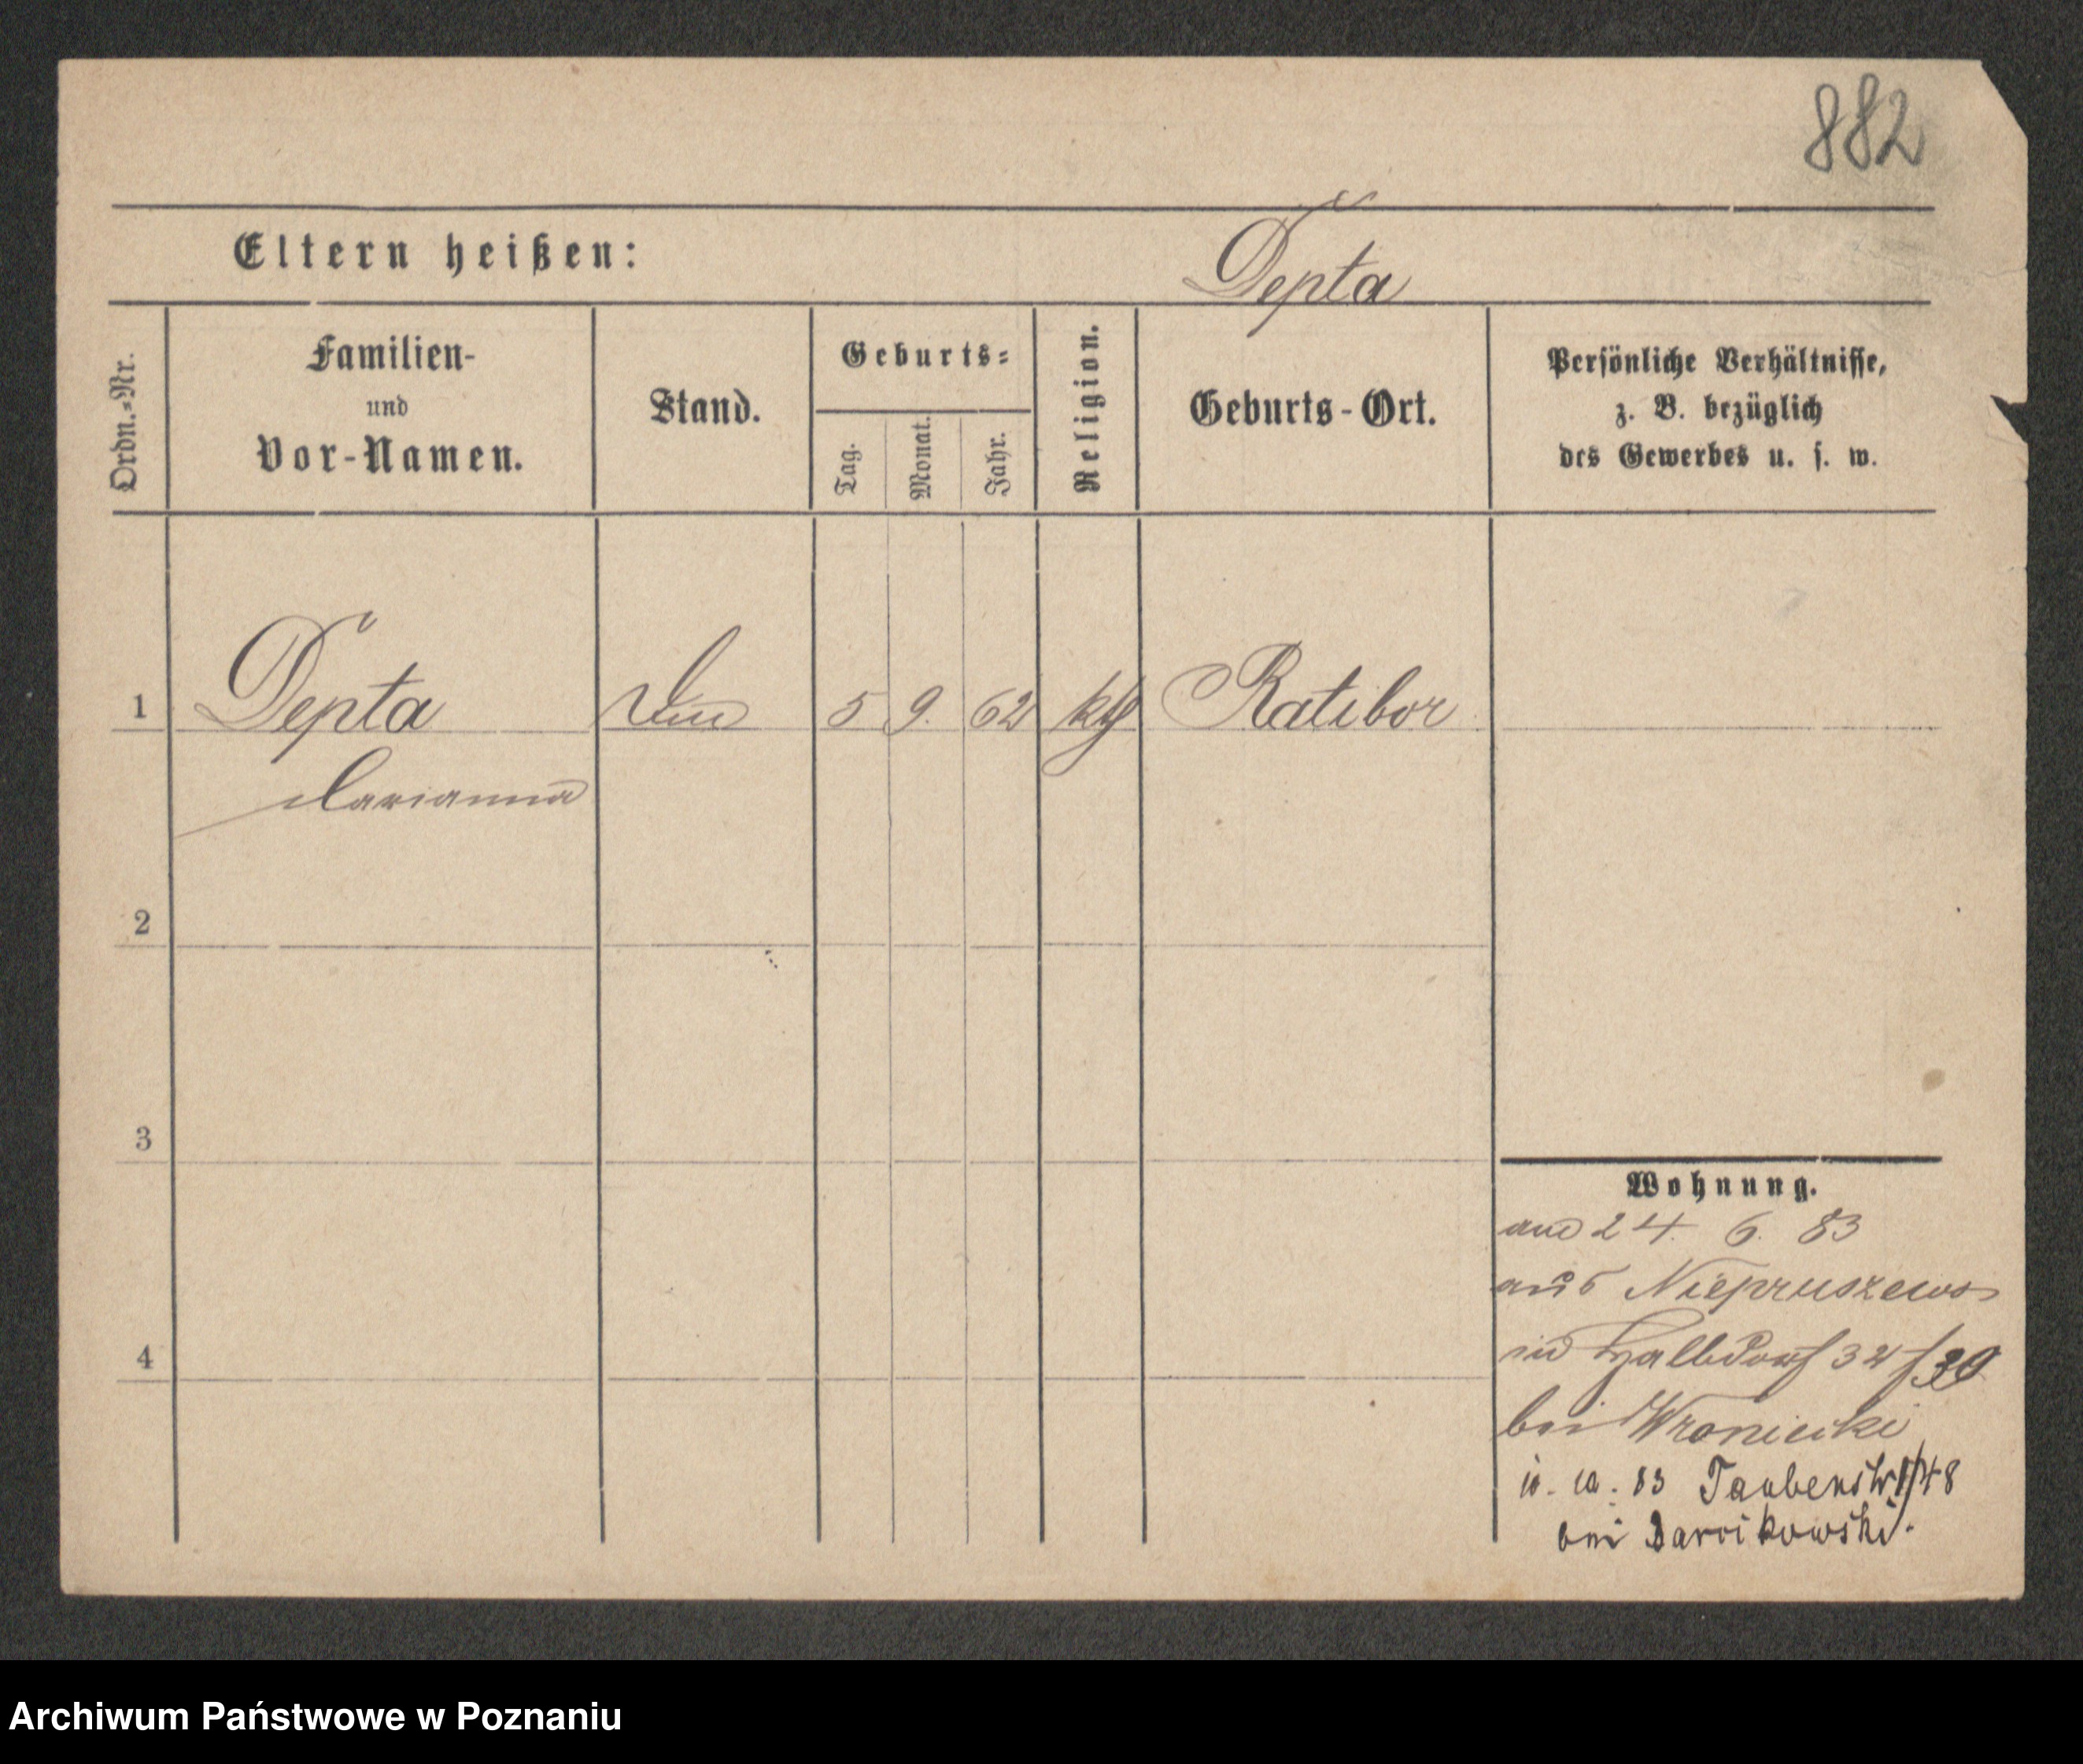 882
Eltern heißen:
Depta
Ordn.=Nr.
Familien-
und
Vor-Namen.
Stand.
Geburts=
Tag.
Monat.
Jahr.
Religion.
Geburts-Ort.
Persönliche Verhältnisse,
z. B. bezüglich
des Gewerbes u. s. w.
1 Depta 5 9. 62 kth Ratibor
Marianna
2
3
4
Wohnung.
24. 6. 83
aus Niepruszewo
Halbdorf 32/39
bei Wroniecki
10. 83 Taubenstr 1/48
bei
Archiwum Państwowe w Poznaniu